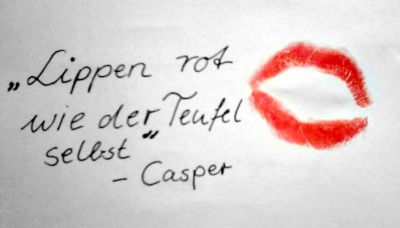 „Lippen rot
wie der Teufel
selbst"
- Casper